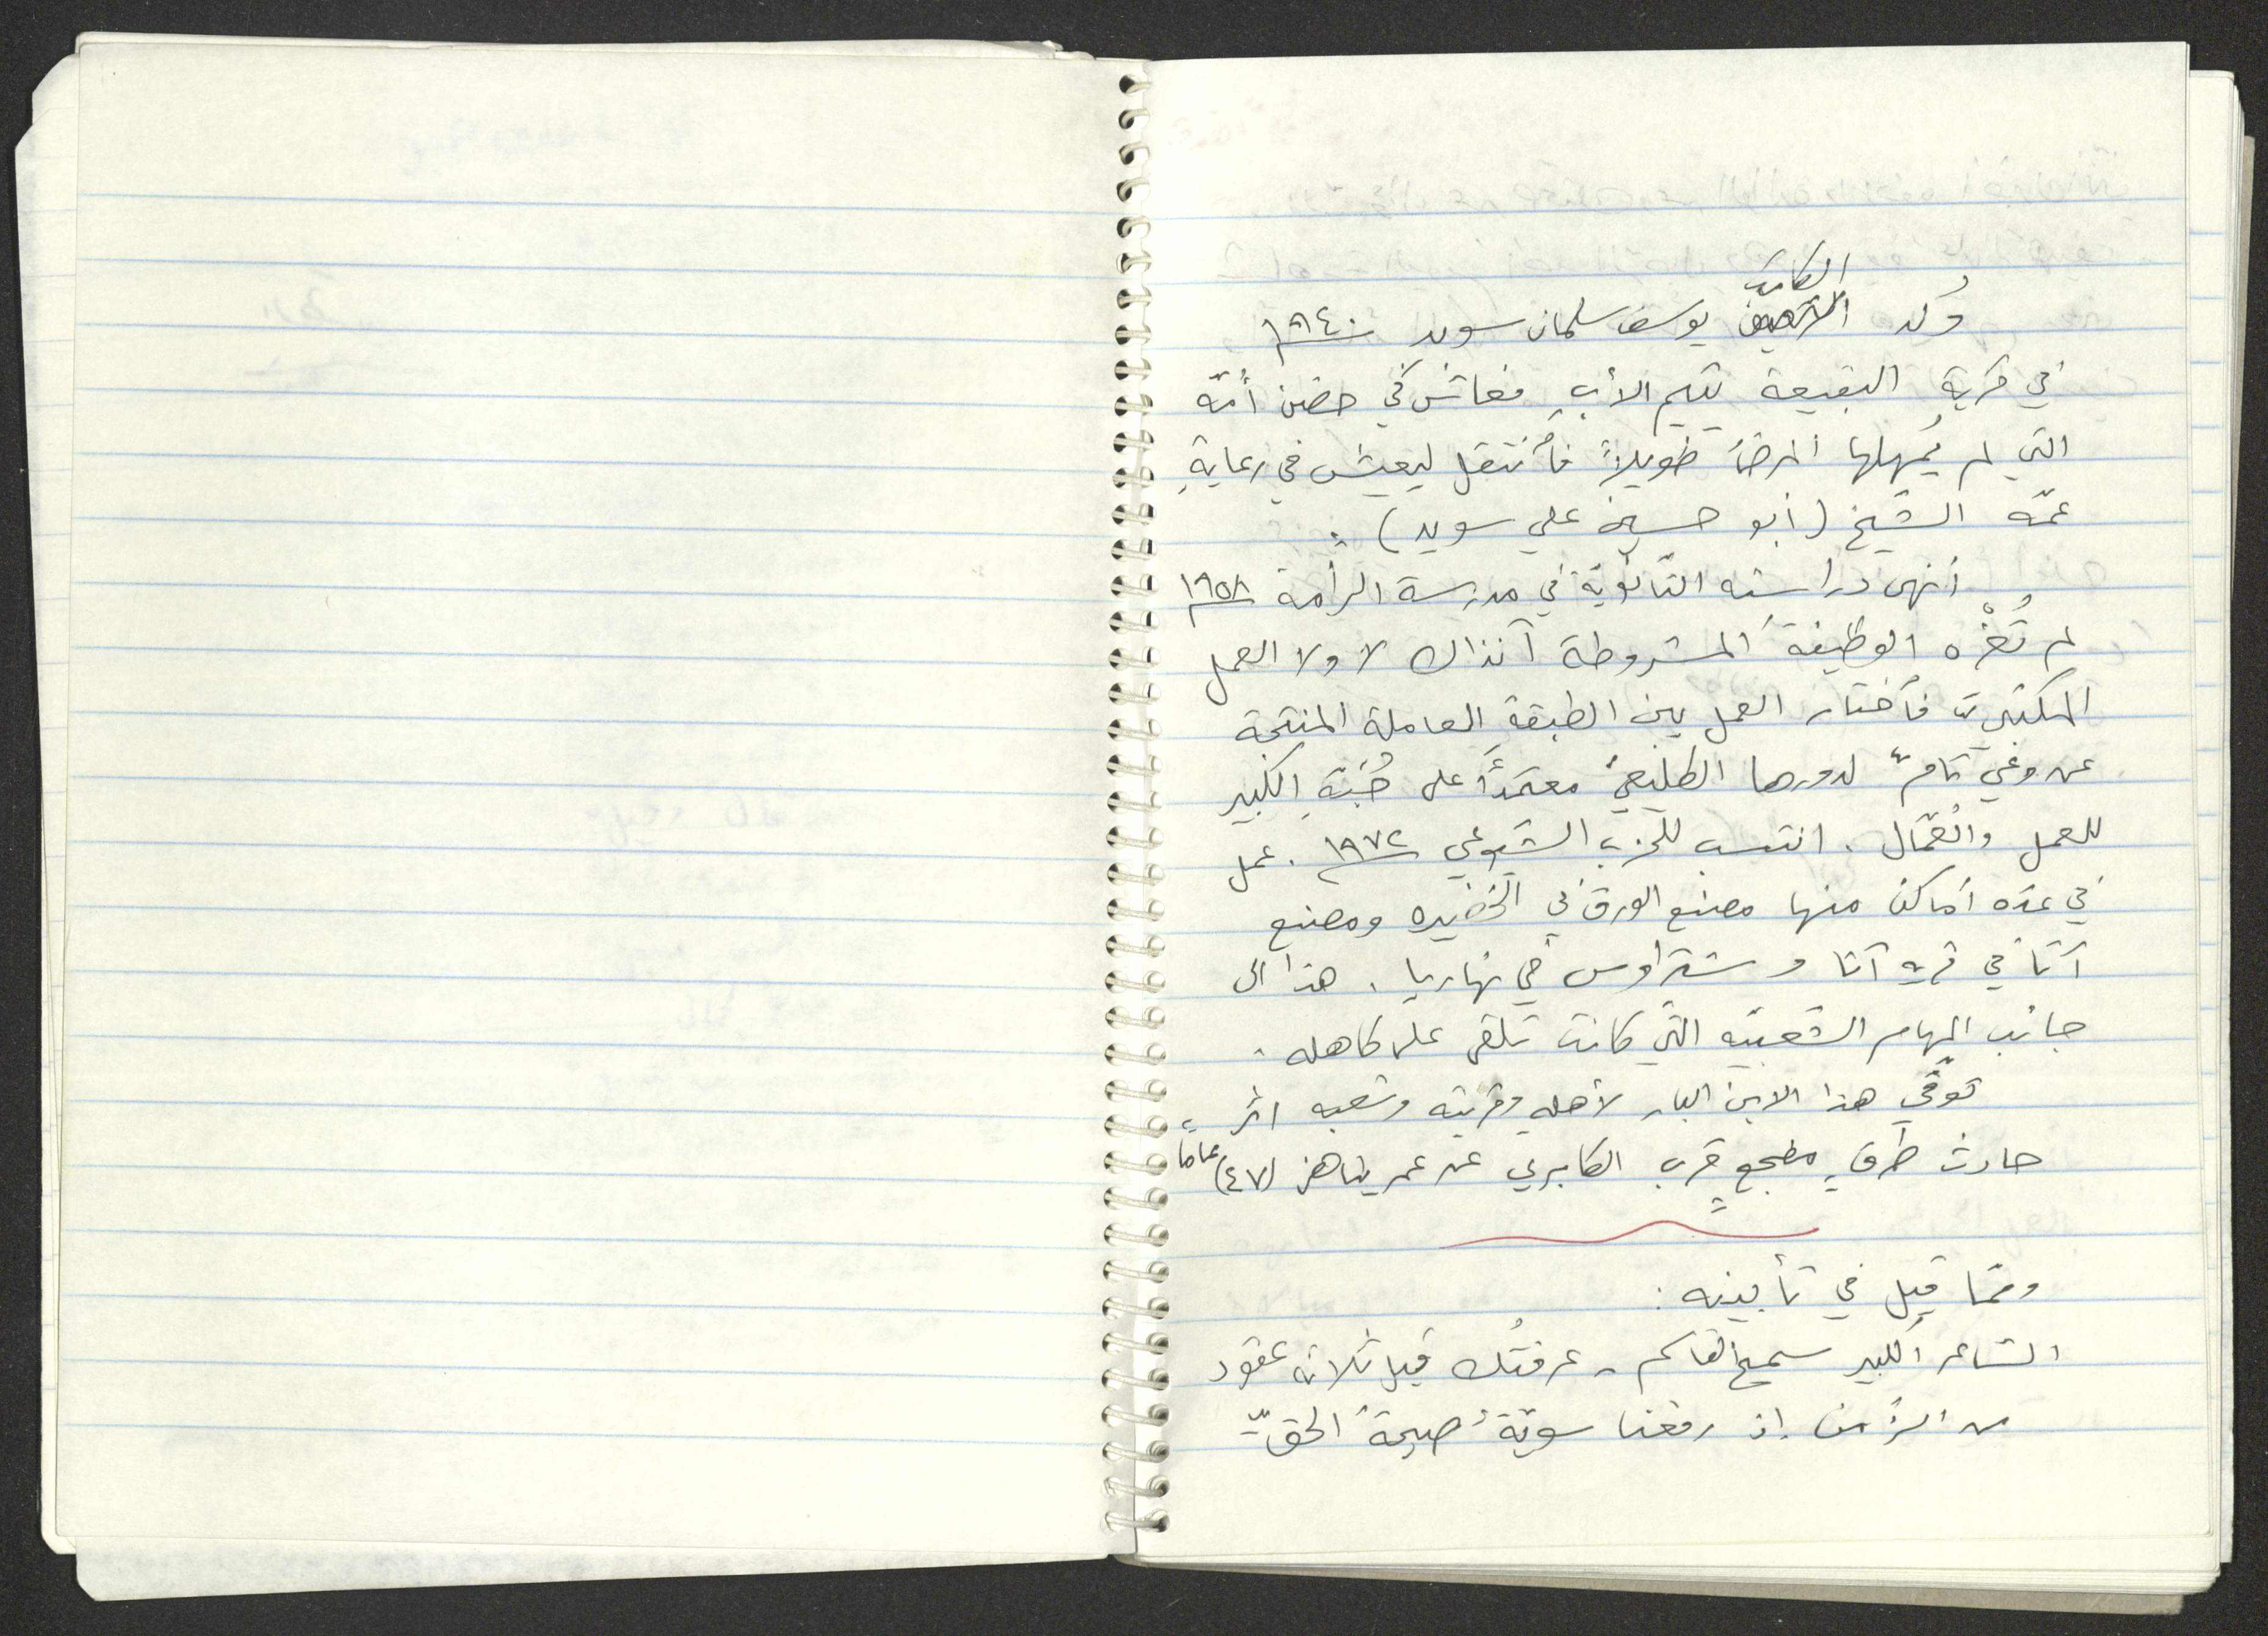 الكاتب
وُلد يوسف سلمان سويد ١٩٤٠
في قرية البقيعة يتيم الأبِ فعاش في حضن أُمّه
التي لم يُمهلها المرضُ طويلاً فٱنتقل ليعيش في رعايةِ
عمّه الشيخ (أبو حسين علي سويد).
أنهى دراسته الثّانويّة في مدرسة الرامة ١٩٥٨
لم تُغْرِه الوظيفةُ المشروطة آنذاك لا ولا العمل
المكتبيّ فٱختار العمل بين الطبقة العاملة المنتجة
عن وعي تامّ لدورها الطليعيّ معتمداً على حُبّهِ الكبير
للعمل والعُمّال. انتسب للحزب الشيوعي ١٩٧٢. عمل
في عدّه أماكن منها مصنع الورق في الخضيره ومصنع
آتا في قريه آتا وشتراوس في نهاريا. هذا الى
جانب المهام الشعبيّه التي كانت تلقى على كاهله.
توفّي هذا الابن البار لأهلهِ وقريته وشعبه اثر
حادث طرقٍ مفجعٍ قرب الكابري عن عمر يناهز (٤٧) عاماً
وممّا قيل في تأبينه:
الشاعر الكبير سميح القاسم - عرفتُك قبل ثلاثه عقود
من الزّمن إذ رفعنا سويّةً صيحةَ الحقّ